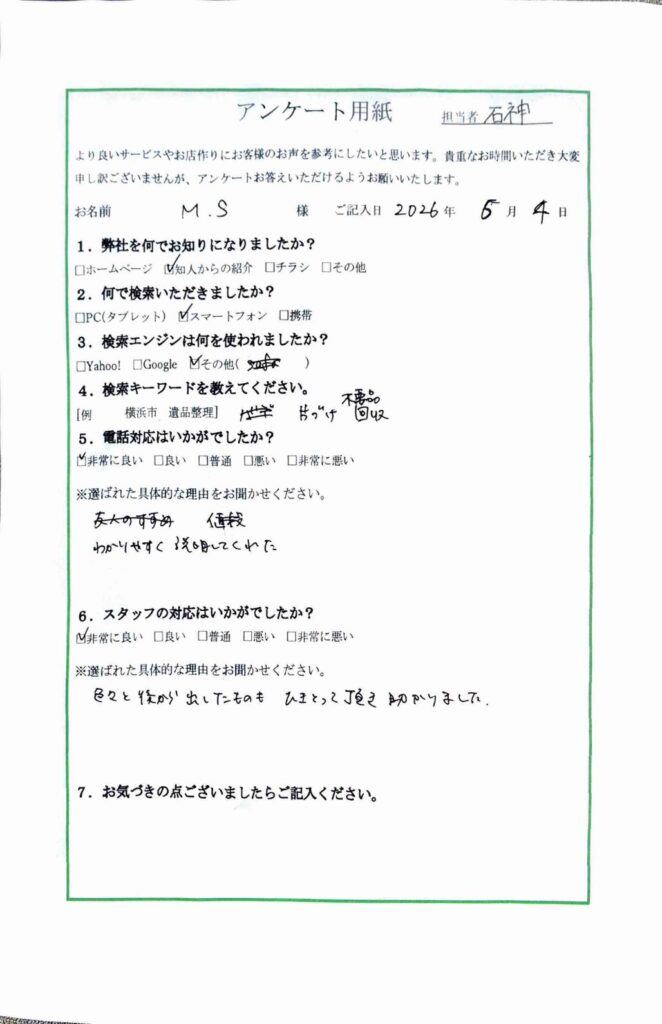 アンケート用紙 担当者 石神
より良いサービスやお店作りにお客様のお声を参考にしたいと思います。貴重なお時間いただき大変
申し訳ございませんが、アンケートお答えいただけるようお願いいたします。
お名前 M.S 様 ご記入日 2026年 5月 4日
1．弊社を何でお知りになりましたか？
□ホームページ ☑知人からの紹介 □チラシ □その他
2．何で検索いただきましたか？
□PC(タブレット) ☑スマートフォン □携帯
3．検索エンジンは何を使われましたか？
□Yahoo! □Google ☑その他( )
4．検索キーワードを教えてください。
[例 横浜市 遺品整理] 片づけ 不要品回収
5．電話対応はいかがでしたか？
☑非常に良い □良い □普通 □悪い □非常に悪い
※選ばれた具体的な理由をお聞かせください。
友人のすすめ 値段
わかりやすく説明してくれた
6．スタッフの対応はいかがでしたか？
☑非常に良い □良い □普通 □悪い □非常に悪い
※選ばれた具体的な理由をお聞かせください。
色々と後から出したものも ひきとって頂き助かりました.
7．お気づきの点ございましたらご記入ください。